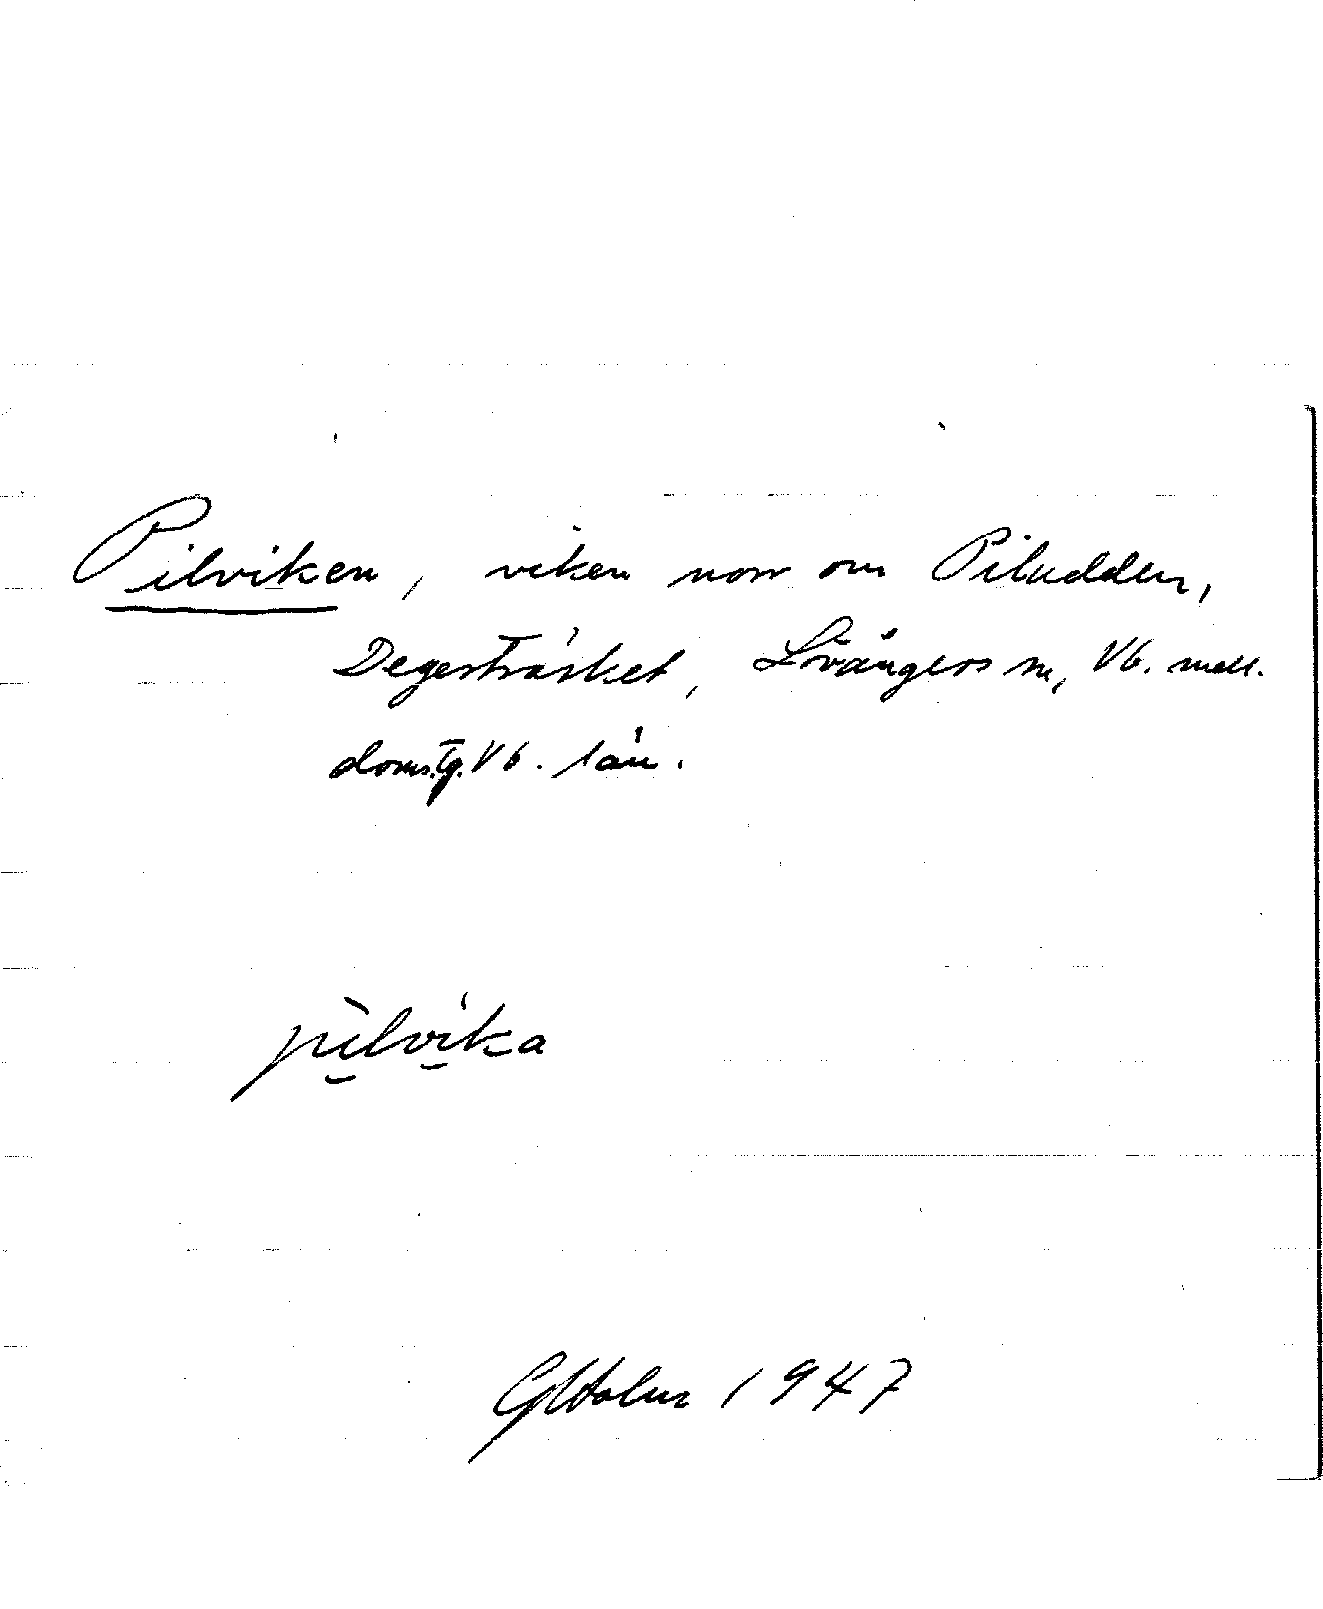 Pilviken, viken norr om Piludden,
Degerträsket, Lövångers sn, Vb. mell.
doms.tg. Vb. län.
pìlvika
GHolm 1947